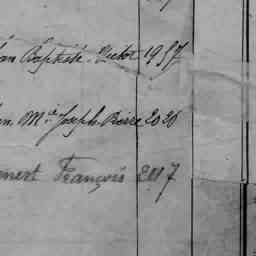 Baptiste Victor 1957
M.ie Joseph Pierre 2036
François 2117